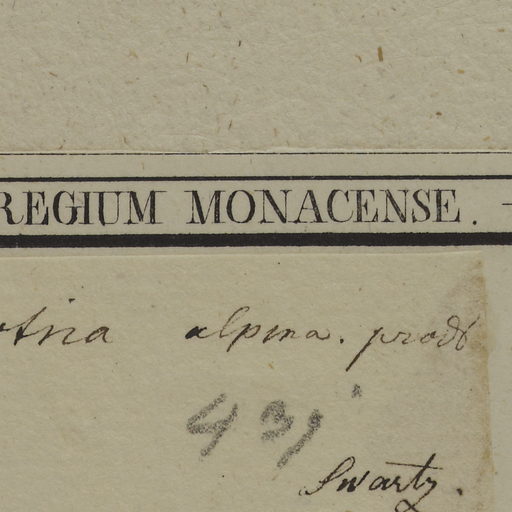 REGIUM MONACENSE.
tria alpina. prodr
431
Swartz.